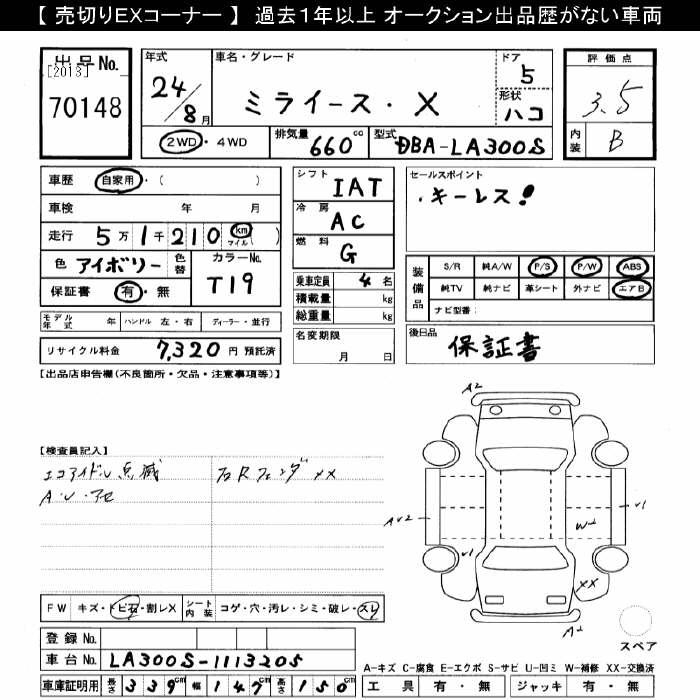 【 売切りEXコーナー 】 過去1年以上 オークション出品歴がない車両
出品No.
[2013]
70148
年式
24/8月
車名・グレード
ミライース・X
ドア
5
形状
ハコ
評価点
3.5
内装
B
2WD・4WD
排気量
660cc
型式
DBA-LA300S
車歴 自家用・( )
車検 年 月
走行 5万1千210km マイル( )
色 アイボリー 色替 カラーNo.
T19
保証書 有・無
シフト
IAT
冷房
AC
燃料
G
セールスポイント
・キーレス!
装備品
S/R 純A/W P/S P/W ABS
純TV 純ナビ 革シート 外ナビ エアB
ナビ型番:
乗車定員 4名
積載量 kg
総重量 kg
モデル年式 年 ハンドル 左・右 ディーラー・並行
名変期限
月 日
後日品
保証書
リサイクル料金 7,320円 預託済
【出品店申告欄(不良箇所・欠品・注意事項等)】
【検査員記入】
エコアイドル点滅
右Rフェンダ XX
A・U・アセ
A2
AU2
U1
W2
U1
XX
A2
スペア
FW キズ・トビ石・割レX シート内装 コゲ・穴・汚レ・シミ・破レ・スレ
登録No.
車台No. LA300S-1113205
車庫証明用 長さ 339cm 幅 147cm 高さ 150cm
A-キズ C-腐食 E-エクボ S-サビ U-凹ミ W-補修 XX-交換済
工具 有・無 ジャッキ 有・無